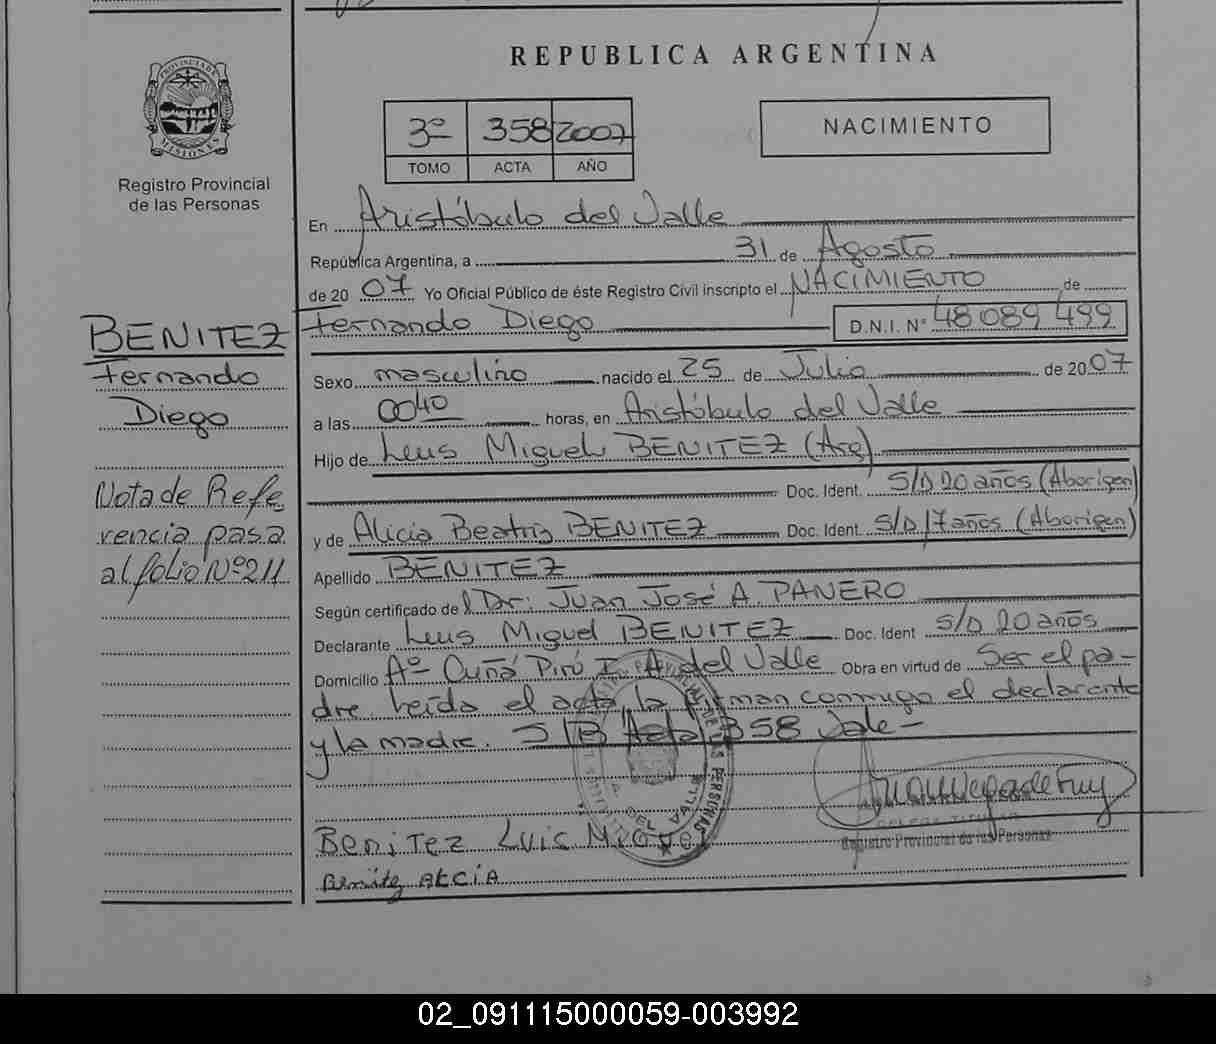 REPUBLICA ARGENTINA
PROVINCIA DE MISIONES
Registro Provincial
de las Personas
3º 358 2007
TOMO ACTA AÑO
NACIMIENTO
En Aristóbulo del Valle
República Argentina, a 31 de Agosto
de 20 07 Yo Oficial Público de éste Registro Civil inscripto el NACIMIENTO de
Fernando Diego D.N.I. Nº 48 089 499
BENITEZ
Fernando
Diego
Nota de Refe
rencia pasa
al folio Nº 211
Sexo masculino nacido el 25 de Julio de 20 07
a las 0040 horas, en Aristóbulo del Valle
Hijo de Luis Miguel BENITEZ (Arg)
Doc. Ident. S/D 20 años (Aborigen)
y de Alicia Beatriz BENITEZ Doc. Ident. S/D 17 años (Aborigen)
Apellido BENITEZ
Según certificado del Dr: Juan José A. PANERO
Declarante Luis Miguel BENITEZ Doc. Ident S/D 20 años
Domicilio Aº Cuñá Pirú I A del Valle Obra en virtud de Ser el pa-
dre leída el acta, la firman conmigo el declarante
y la madre. S/B Acta 358 Vale-
DEL VALLE
DE LAS PERSONAS
Registro Provincial de las Personas
Benitez Luis Miguel
Benitez ALCIA
02_091115000059-003992